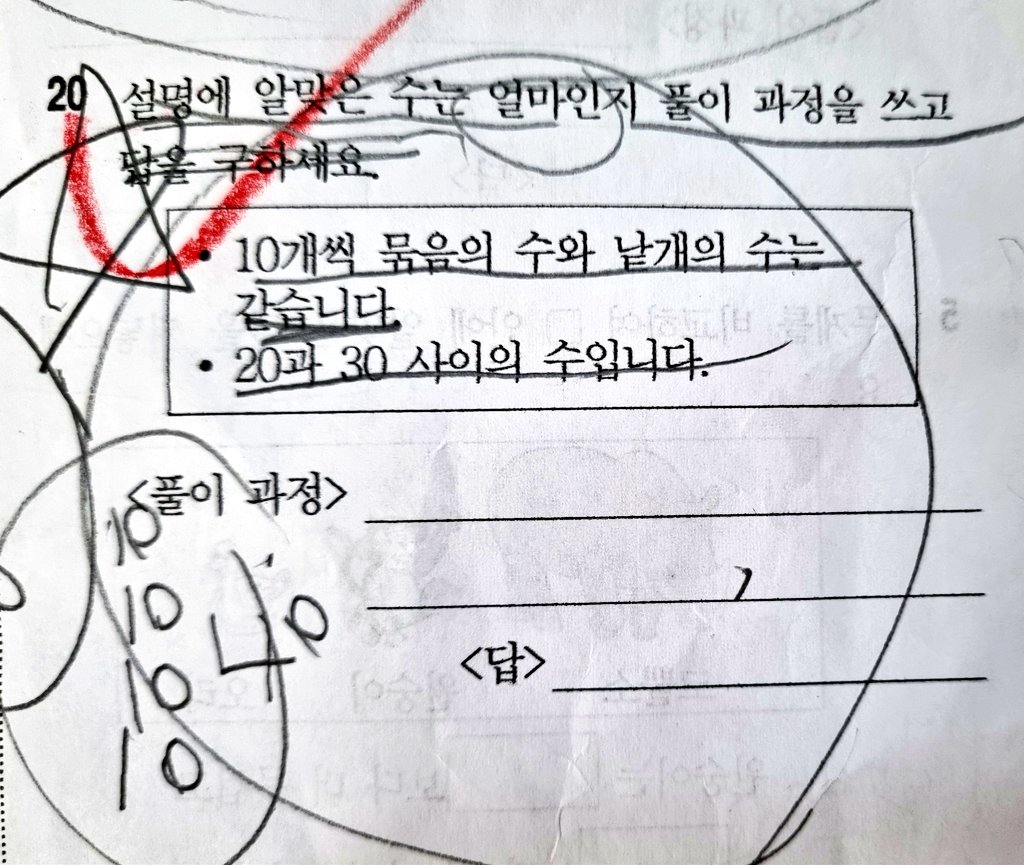 20 설명에 알맞은 수는 얼마인지 풀이 과정을 쓰고
답을 구하세요.
• 10개씩 묶음의 수와 낱개의 수는
같습니다.
• 20과 30 사이의 수입니다.
<풀이 과정>
10
10
40
10
10
<답>